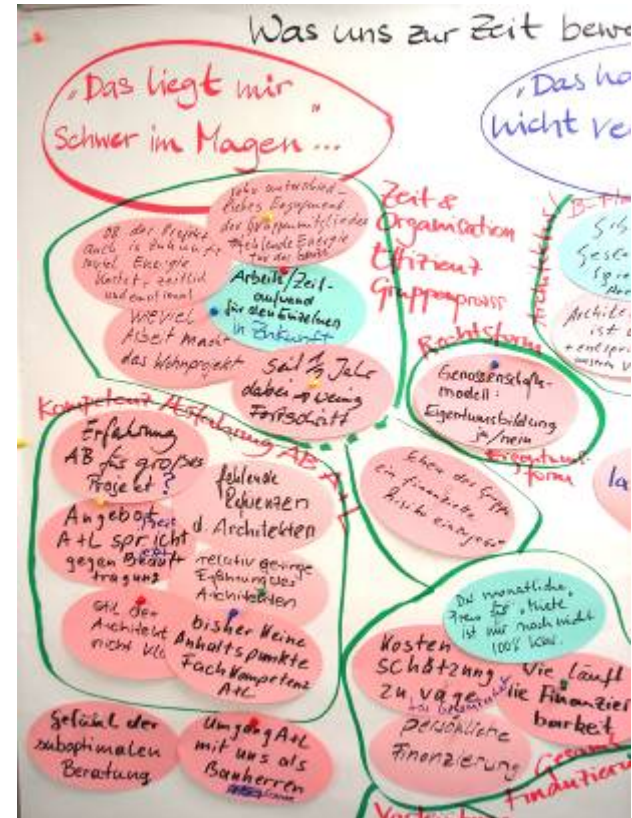 Was uns zur Zeit bewe
"Das liegt mir
Schwer im Magen..."
"Das ha
nicht ve
sehr unterschied-
liches Engagement
der Gruppenmitglieder
fehlende Energie
ob das Projekt
auch in Zukunft
soviel Energie
kostet, zeitlich
und emotional
Arbeits/Zeit-
aufwand
für den Einzelnen
in Zukunft
wieviel
Arbeit macht
das Wohnprojekt
Seit 1/2 Jahr
dabei → wenig
Fortschritt
Zeit &
Organisation
Effizienz
Gruppenprozess
Rechtsform
Genossenschafts-
modell:
Eigentumsbildung
ja/nein
Eigentums-
form
Architektur
B-Plan
Archite
ist
Kompetenz Erfahrung AB A+L
Erfahrung
AB für großes
Projekt?
fehlende
Referenzen
d. Architekten
Angebot
A+L spricht
gegen Beauf
tragung
relativ geringe
Erfahrung des
Architekten
Stil der
Architekt
nicht kla
bisher keine
Anhaltspunkte
Fachkompetenz
A+L
Gefühl der
suboptimalen
Beratung
Umgang A+L
mit uns als
Bauherren
Scheu der Gruppe
ein finanzielles
Risiko einzugehen
la
Der monatliche
Preis für "Miete"
ist mir noch nicht
100% klar.
Kosten
schätzung
zu vage
Wie läuft
die Finanzier
barkeit
persönliche
Finanzierung
Gesamt
Finanzieru